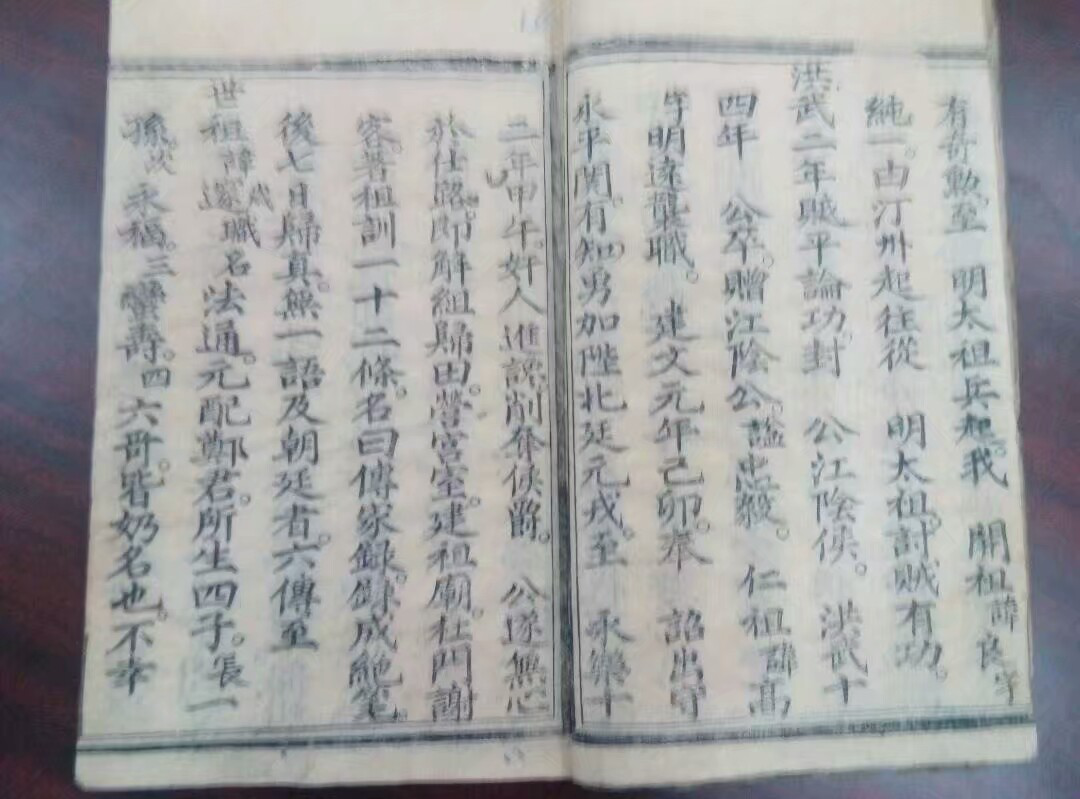 有奇勳。至　明太祖兵起。我　開祖諱良字
純一。由汀州起往從　明太祖。討賊有功。
洪武二年賊平論功。封　公江陰侯。洪武十
四年　公卒。贈江陰公。謚忠毅。　仁祖諱高
字明遠襲職。　建文元年己卯。奉　詔出守
永平関。有知。勇加陞北廷元戎。至　永樂十
二年甲午。奸人進誤削奪侯爵。　公遂無心
於仕路。即解組歸田。營宮室。建祖廟。杜門謝
客。著祖訓一十二條。名曰傳家録。録成絶笔。
後七日歸真。無一語及朝廷者。六傳至
世祖諱邃職名法通。元配鄭君。所生四子。長一
孫。次永福。三蠻壽。四六哥。皆奶名也。不幸